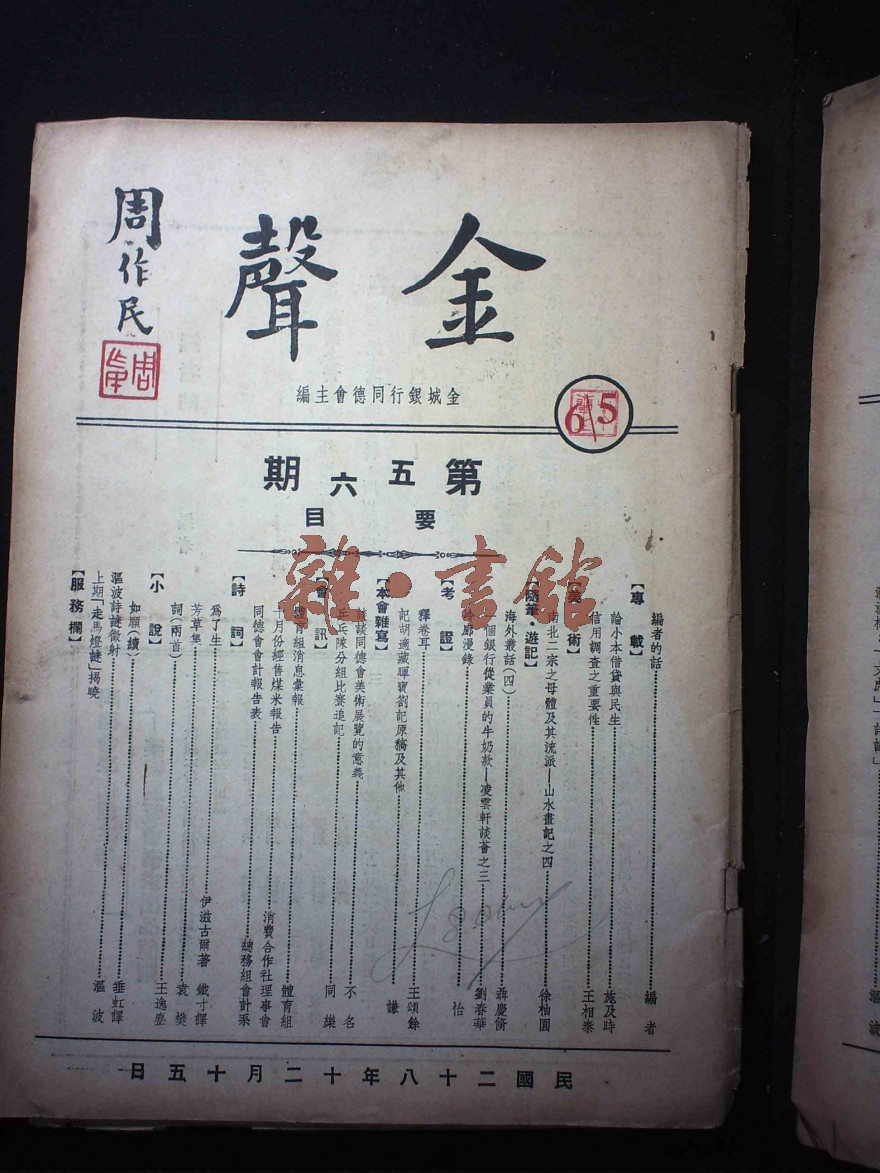 金聲
周作民
金城銀行同德會主編
5
6
第五六期
要目
雜·書館
【專載】
編者的話 編者
論小本借貸與民生 施及時
信用調查之重要性 王相秦
【美術】
南北二宗之母體及其流派—山水畫記之四 徐柚園
【隨筆·遊記】
海外叢話(四)
個銀行從業員的牛奶款—凌雲軒談薈之三 劉春華
【考證】
廊漫錄 怡
釋卷耳 王頌餘
記胡適藏暉寶劄記原稿及其他 謙
【本會雜寫】
談談同德會美術展覽的意義 不名
乒乓隊分組比賽追記 同樂
【會訊】
體育組消息彙報 體育組
十月份經售煤米報告 消費合作社理事會
同德會會計報告表 總務組會計系
【詩詞】
爲了生
芳草集 伊滋古爾著 鐵寸譯
詞(兩首) 袁樊
【小說】
如願(續) 王逸塵
漚波詩謎徵射 垂虹譯
上期「走馬燈謎」揭曉 漚波
【服務欄】
民國二十八年十二月十五日